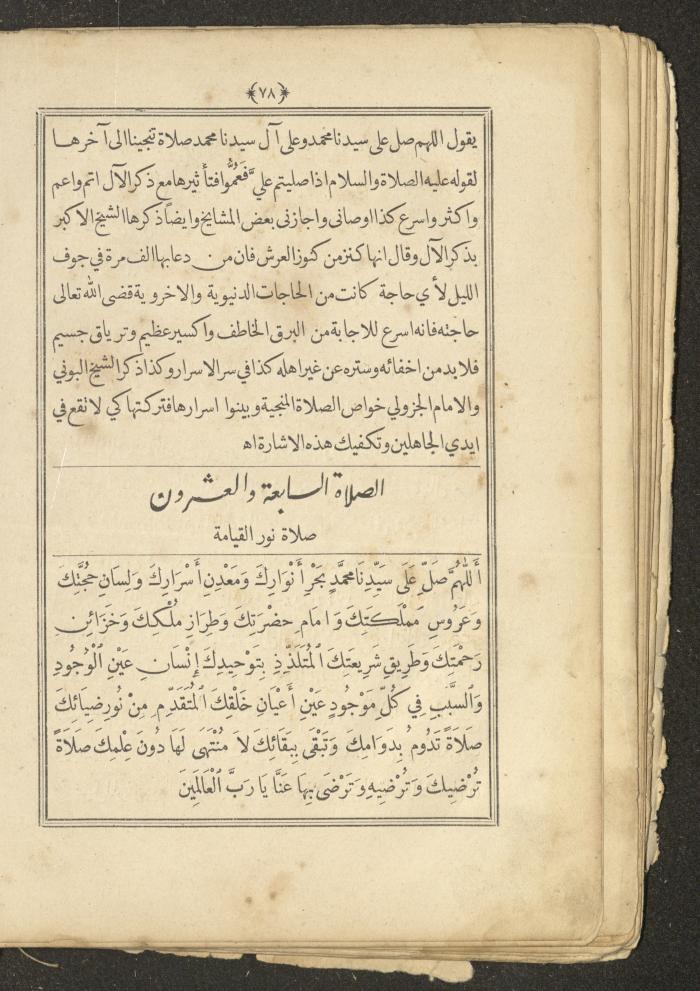 ﴿٧٨﴾
يقول اللهم صل على سيدنا محمد وعلى آل سيدنا محمد صلاة تنجينا الى آخرها
لقوله عليه الصلاة والسلام اذا صليتم عليّ فَعَمِّمُوا فتأثيرها مع ذكر الآل اتم واعم
واكثر واسرع كذا اوصانى واجازنى بعض المشايخ وايضاً ذكرها الشيخ الاكبر
بذكر الآل وقال انها كنز من كنوز العرش فان من دعا بها الف مرة في جوف
الليل لأي حاجة كانت من الحاجات الدنيوية والاخروية قضى الله تعالى
حاجته فانه اسرع للاجابة من البرق الخاطف واكسير عظيم وترياق جسيم
فلا بد من اخفائه وستره عن غير اهله كذا في سر الاسرار وكذا ذكر الشيخ البوني
والامام الجزولي خواص الصلاة المنجية وبينوا اسرارها فتركتها كي لا تقع في
ايدي الجاهلين وتكفيك هذه الاشارة اه
الصلاة السابعة والعشرون
صلاة نور القيامة
أَللّٰهُمَّ صَلِّ عَلَى سَيِّدِنَا مُحَمَّدٍ بَحْرِ أَنْوَارِكَ وَمَعْدِنِ أَسْرَارِكَ وَلِسَانِ حُجَّتِكَ
وَعَرُوسِ مَمْلَكَتِكَ وَإِمَامِ حَضْرَتِكَ وَطِرَازِ مُلْكِكَ وَخَزَائِنِ
رَحْمَتِكَ وَطَرِيقِ شَرِيعَتِكَ الْمُتَلَذِّذِ بِتَوْحِيدِكَ إِنْسَانِ عَيْنِ الْوُجُودِ
وَالسَّبَبِ فِي كُلِّ مَوْجُودٍ عَيْنِ أَعْيَانِ خَلْقِكَ الْمُتَقَدِّمِ مِنْ نُورِ ضِيَائِكَ
صَلَاةً تَدُومُ بِدَوَامِكَ وَتَبْقَى بِبَقَائِكَ لَا مُنْتَهَى لَهَا دُونَ عِلْمِكَ صَلَاةً
تُرْضِيكَ وَتُرْضِيهِ وَتَرْضَى بِهَا عَنَّا يَا رَبَّ الْعَالَمِينَ